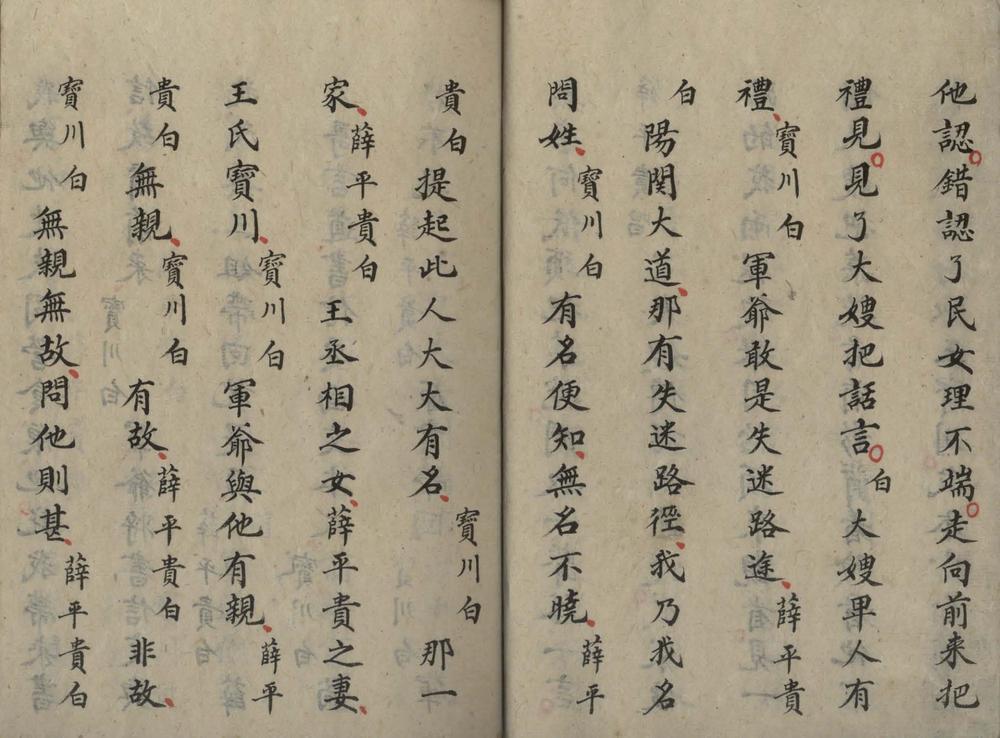 他認。錯認了民女理不端。走向前来把
禮見。見了大嫂把話言。白大嫂早人有
禮、寶川白軍爺敢是失迷路途、薛平貴
白陽関大道、那有失迷路徑、我乃我名
問姓、寶川白有名便知、無名不曉、薛平
貴白提起此人大大有名、寶川白那一
家、薛平貴白王丞相之女、薛平貴之妻、
王氏寶川、寶川白軍爺與他有親、薛平
貴白無親、寶川白有故、薛平貴白非故、
寶川白無親無故、問他則甚、薛平貴白